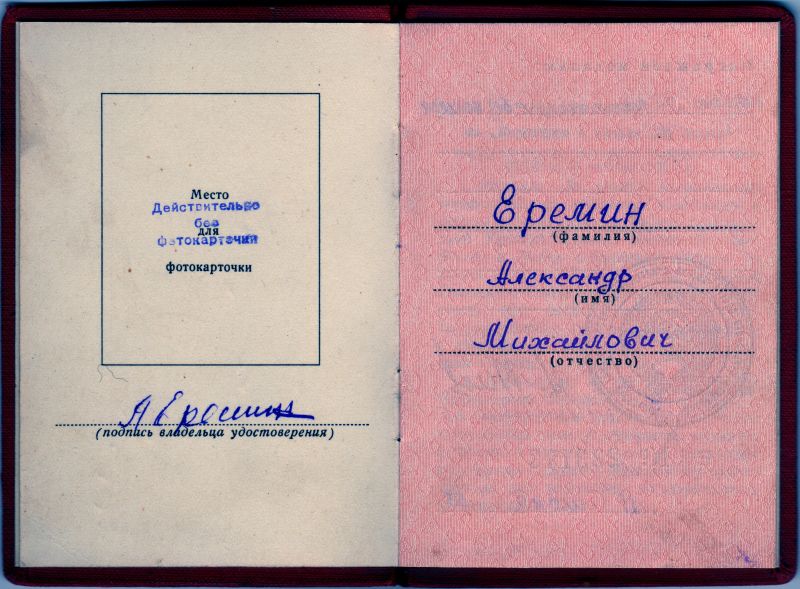 Место
Действительно
без
для
фотокарточки
фотокарточки
А Еремин
(подпись владельца удостоверения)
Еремин
(фамилия)
Александр
(имя)
Михайлович
(отчество)